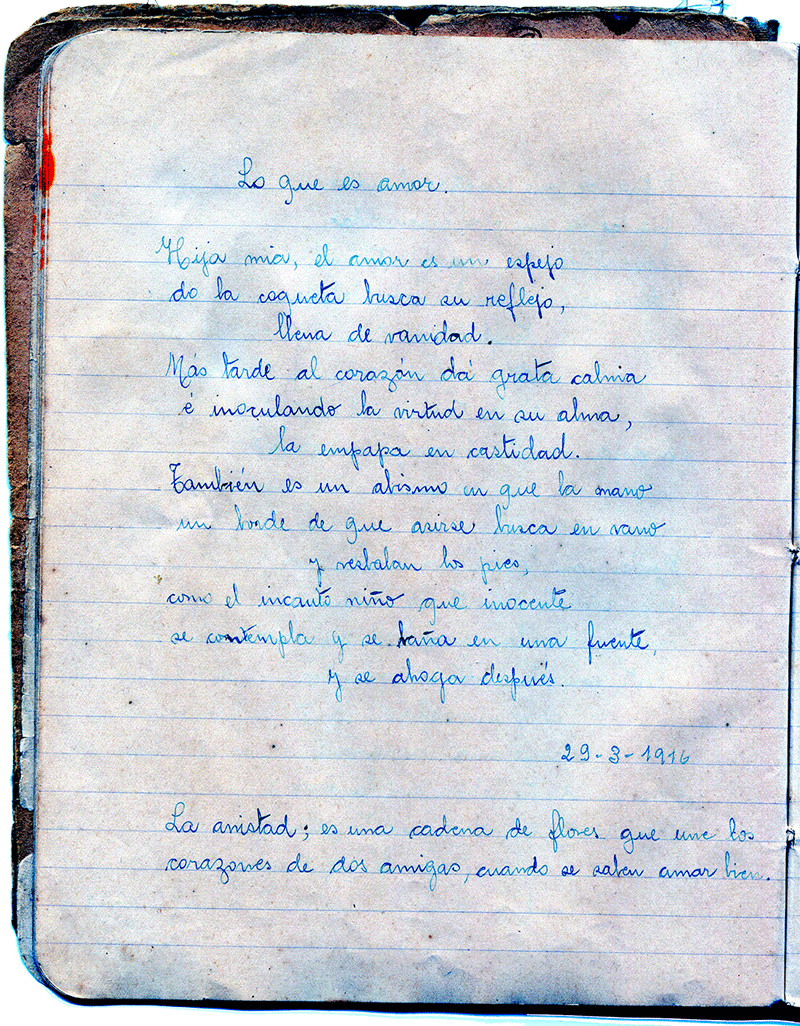 Lo que es amor.
Hija mia, el amor es un espejo
do la coqueta busca su reflejo,
llena de vanidad.
Más tarde al corazón dá grata calma
é inoculando la virtud en su alma,
la empapa en castidad.
También es un abismo en que la mano
un borde de que asirse busca en vano
y resbalan los pies,
como el incauto niño que inocente
se contempla y se baña en una fuente,
y se ahoga después.
29-3-1916
La amistad; es una cadena de flores que une los
corazones de dos amigas, cuando se saben amar bien.